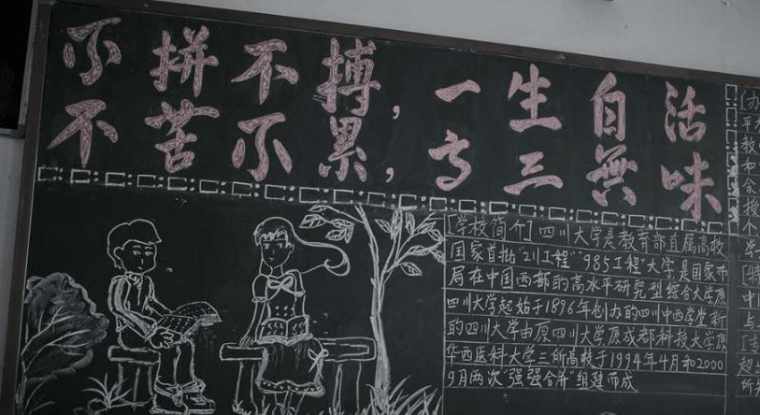 不拼不搏，一生白活
不苦不累，高三無味
[学校简介]四川大学是教育部直属高校
国家首批"211工程""985工程"大学是国家布
局在中国西部的高水平研究型综合大学原
四川大学起始于1896年创办的四川中西学堂新
的四川大学由原四川大学原成都科技大学原
华西医科大学三所高校于1994年4月和2000
9月两次"强强合并"组建而成